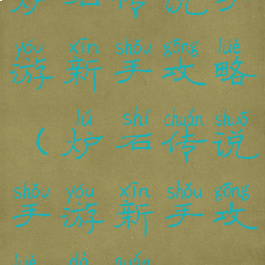 炉石传说手
yóu xīn shǒu gōng lüè
游新手攻略
lú shí chuán shuō
（炉石传说
shǒu yóu xīn shǒu gōng
手游新手攻